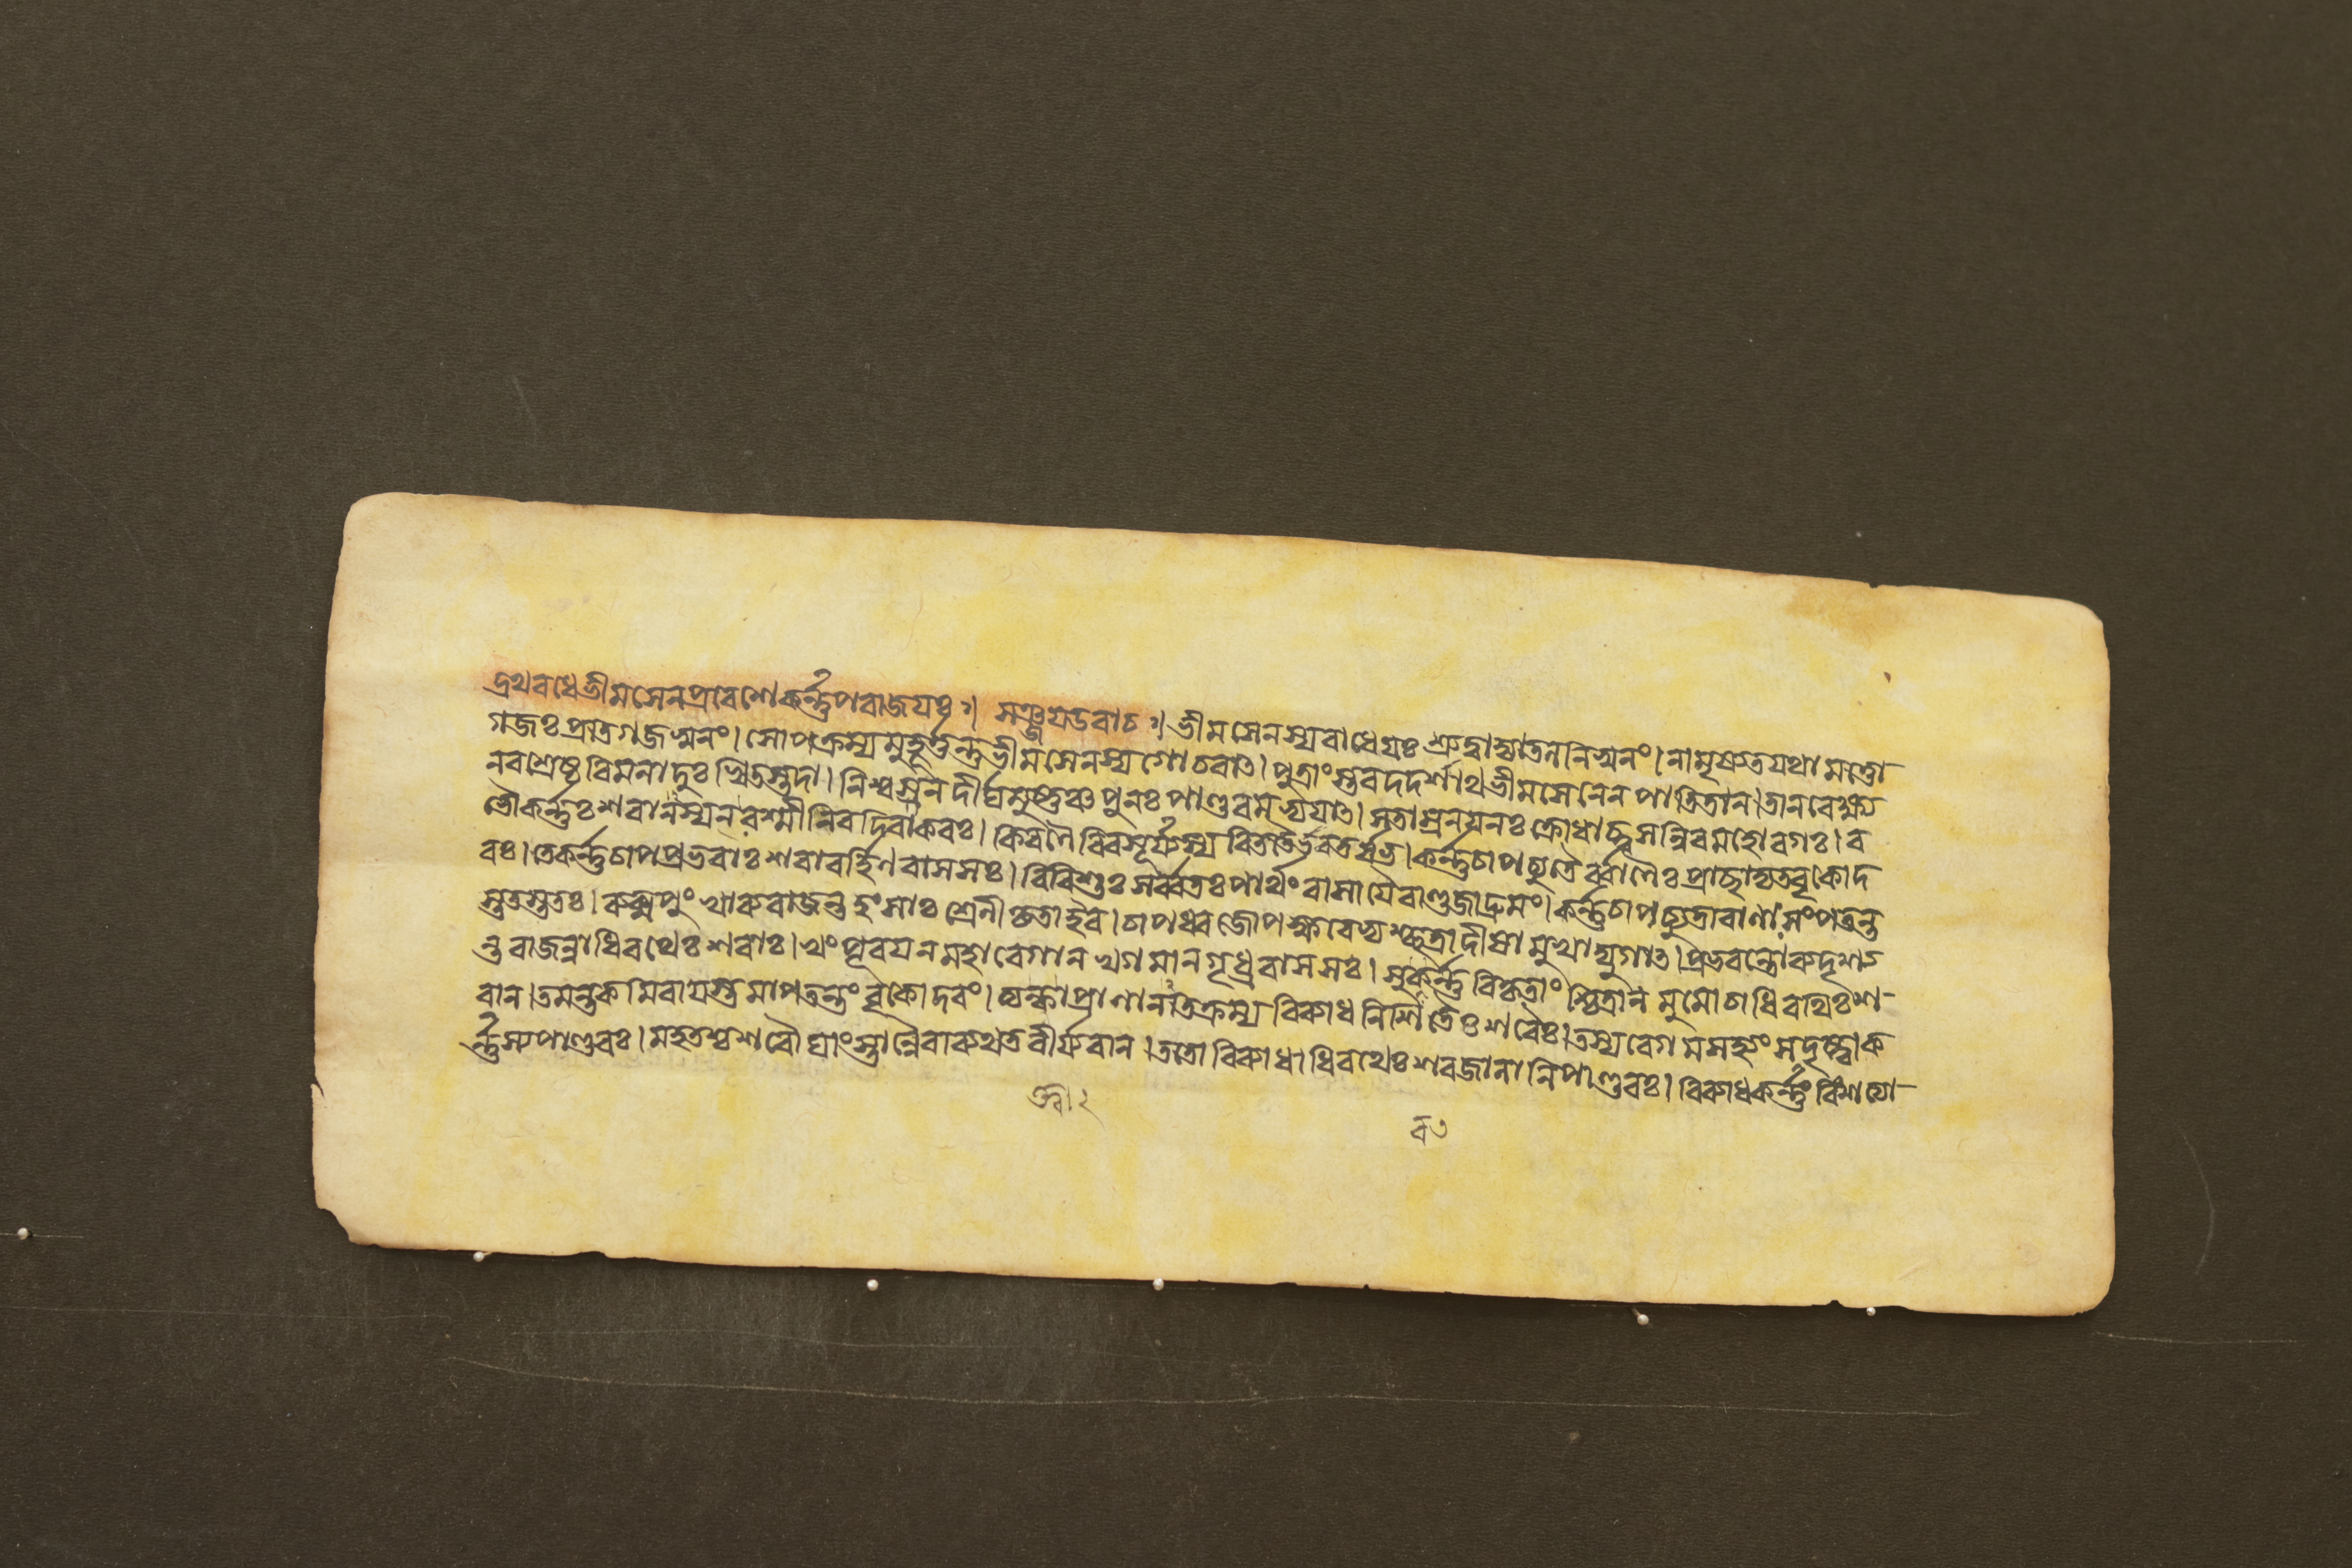 দ্রথবধেভীমসেনপ্রবেশেকর্ন্নপরাজযঃ॥ সঞ্জযউবাচ॥ ভীমসেনস্যরাধেযঃ শ্রুত্বাজ্যাতলনিস্বনং। নামৃষ্যতযথামত্তো-
গজঃপ্রতিগজস্বনং। সোপক্রম্যমুহূর্ত্তন্তুভীমসেনস্যগোচরাৎ। পুত্রাংস্তবদদর্শাথভীমসেনেনপাতিতান। তানবেক্ষ্য
নরশ্রেষ্ঠবিমনাদুঃখিতস্তদা। নিশ্বসনদীর্ঘমুষ্ণঞ্চপুনঃপাণ্ডবমভ্যযাৎ। সতাম্রনযনঃক্রোধাচ্ছ্বসন্নিবমহোরগঃ। ব
ভৌকর্ন্নঃশরানস্যনরশ্মীনিবদিবাকরঃ। কিরণৈরিবসূর্য্যস্যবিততৈর্ভরতর্ষভ। কর্ন্নচাপচ্যুতৈর্ব্বাণৈঃপ্রাচ্ছাদ্যতবৃকোদ
রঃ। তেকর্ন্নচাপপ্রভবাঃশরাবর্হিণবাসসঃ। বিবিশুঃসর্ব্বতঃপার্থংবাসাযেবাণ্ডজাদ্রুমং। কর্ন্নচাপচ্যুতাবাণাঃসংপতন্ত
স্ততস্ততঃ। রুক্মপুংখারুরাজন্তহংসাঃশ্রেণীকৃতাইব। চাপধ্বজোপস্করেভ্যশ্ছত্রাদীষামুখাদ্যুগাৎ। প্রভবন্তোরুদৃশ্য
ন্তরাজন্নাধিরথেঃশরাঃ। খংপূরযনমহাবেগানখগমানগৃধ্রবাসসঃ। সুকর্ন্নবিকৃতাংশ্চিত্রানমুমোচাধিরথিঃশ-
রান। তমন্তকমিবাযস্তমাপতন্তংবৃকোদরং। ত্যক্ত্বাপ্রাণানতিক্রম্যবিব্যাধনিশিতৈঃশরৈঃ। তস্যবেগমসহ্যংসদৃষ্ট্বাক
র্ন্নস্যপাণ্ডবঃ। মহতশ্চশরৌঘাংস্তান্নৈবাব্যথতবীর্য্যবান। ততোবিব্যাধাধিরথেঃশরজালানিপাণ্ডবঃ। বিব্যাধকর্ন্নংবিংশত্যা-